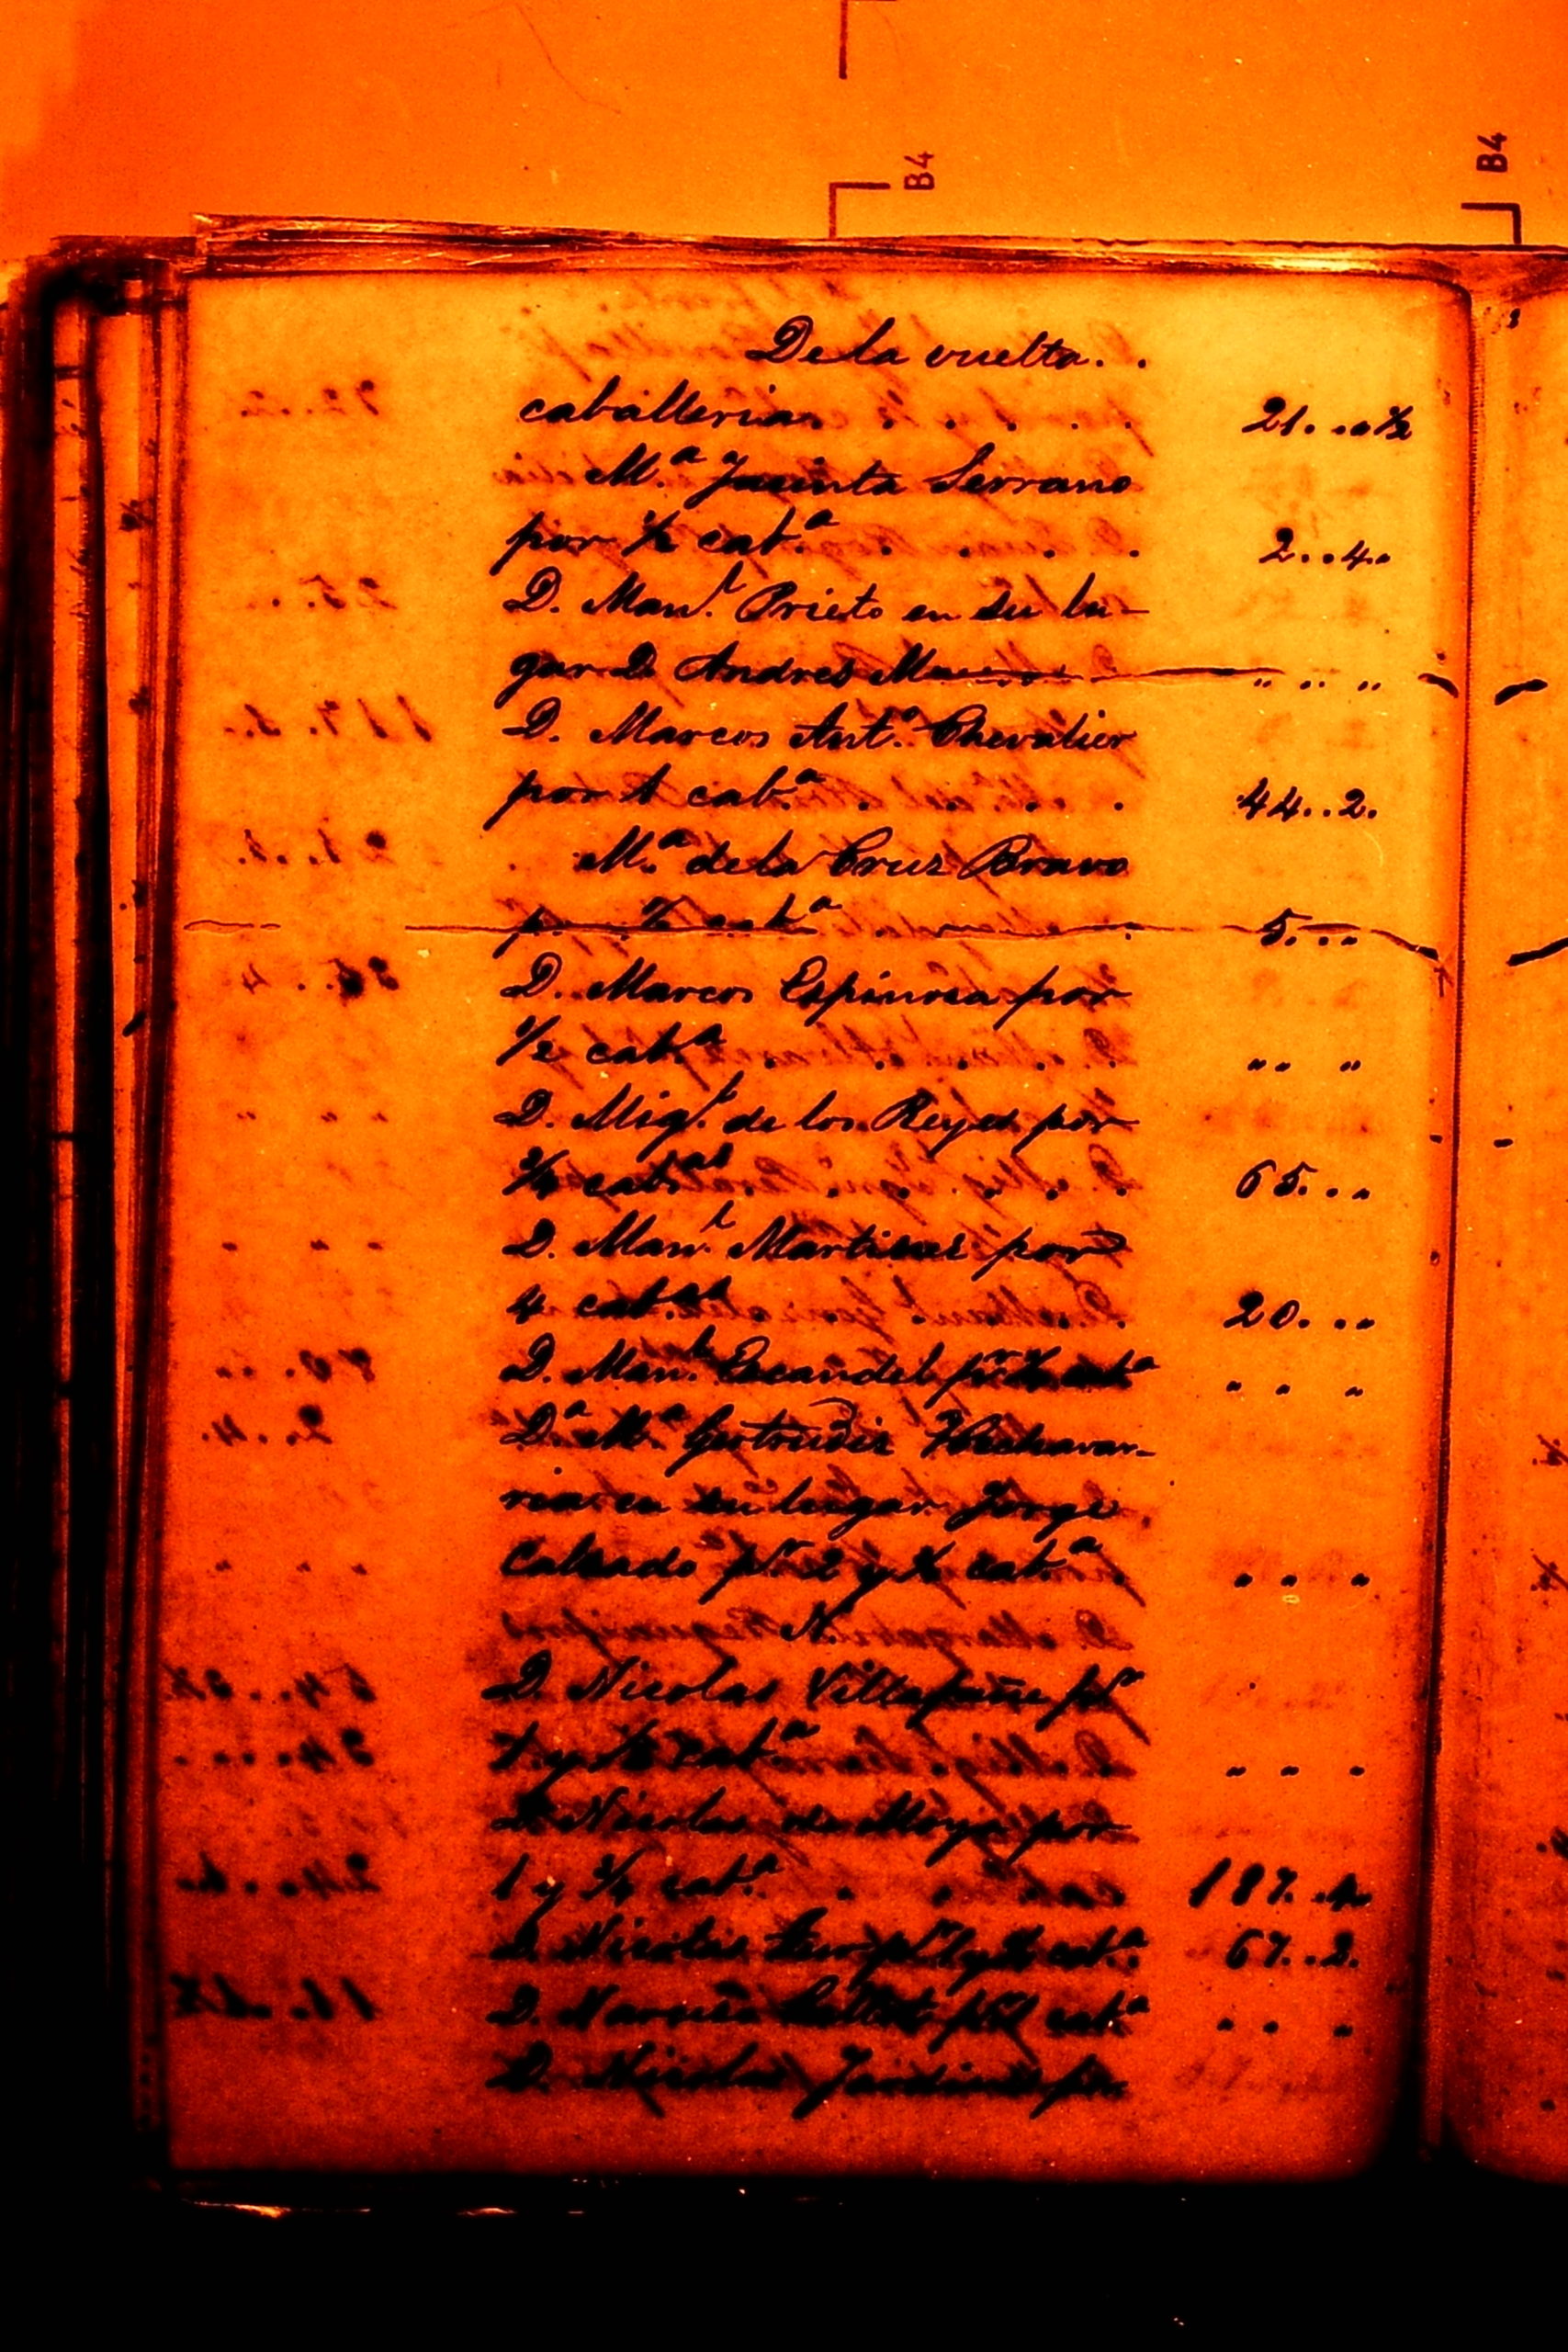 B4
B4
De la vuelta. .
caballeria . . . . . 21. ..½
M.ª Jacinta Serrano
por ½ cab.ª . . . 2. .4.
D. Man.l Prieto en su lu-
gar D. Andres " " "
D. Marcos Ant.º Chevalier
por 1 cab.ª . . . 44. .2.
M.ª de la Cruz Bravo
cab.ª . 5. . .
D. Marcos Espinosa por
½ cab.ª . . . . " "
D. Mig.l de los Reyes por
¾ cab.as . . . . 65. . .
D. Man.l Martines por
4 cab.as . 20. . .
D. Man.l Escandel p.r cab.ª " " "
D.ª M.ª Gertrudis Hechavar-
ria en su lugar Jorge
Calzado p.r 2 y cab.ª . " " "
N.
D. Nicolas Villafañe p.r
1 y ½ cab.ª " " "
D. Nicolas de Moya por
1 y ¾ cab.ª . . . 187. .4.
D. Nicolas p.r 1 y cab.ª. 67. .2.
D. p.r cab.ª " " "
D. Nicolas Jardines por